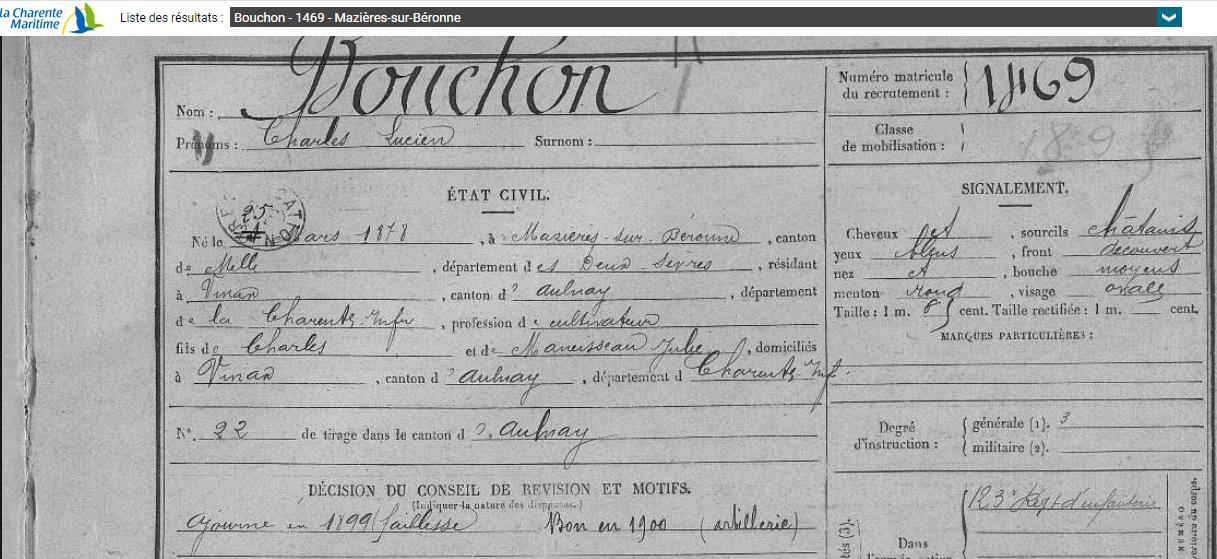 la Charente
Maritime
Liste des résultats :
Bouchon - 1469 - Mazières-sur-Béronne
Nom : Bouchon
Prénoms : Charles Lucien Surnom :
Numéro matricule
du recrutement : 1469
Classe
de mobilisation : 189
ÉTAT CIVIL.
Né le 25 mars 1878, à Mazières-sur-Béronne, canton
de Melle, département des Deux-Sèvres, résidant
à Vinax, canton d' Aulnay, département
de la Charente Infre, profession de cultivateur
fils de Charles et de Julie, domiciliés
à Vinax, canton d' Aulnay, département d Charente-Inf.
N°. 22 de tirage dans le canton d' Aulnay
DÉCISION DU CONSEIL DE REVISION ET MOTIFS.
(Indiquer la nature des dispenses.)
Ajourné en 1899 (faiblesse Bon en 1900 (artillerie)
SIGNALEMENT.
Cheveux et, sourcils châtains
yeux bleus, front découvert
nez et, bouche moyens
menton rond, visage ovale
Taille : 1 m. 6 cent. Taille rectifiée : 1 m. cent.
MARQUES PARTICULIÈRES :
Degré
d'instruction :
générale (1). 3
militaire (2).
123e Régt d'infanterie
Dans